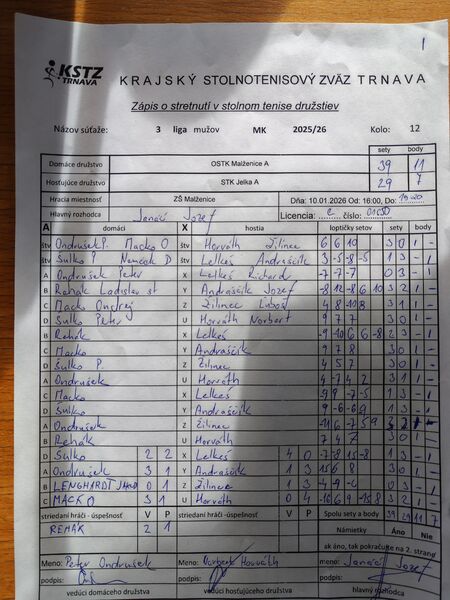 1
KSTZ TRNAVA KRAJSKÝ STOLNOTENISOVÝ ZVÄZ TRNAVA
Zápis o stretnutí v stolnom tenise družstiev
Názov súťaže: 3 liga mužov MK 2025/26 Kolo: 12
sety body
Domáce družstvo OSTK Malženice A 39 11
Hosťujúce družstvo STK Jelka A 29 7
Hracia miestnosť ZŠ Malženice Dňa: 10.01.2026 Od: 16:00, Do:
Hlavný rozhodca Janáč Jozef Licencia: C číslo: 01050
A domáci X hostia loptičky setov sety body
štv Ondrušek P. Macko O štv Horváth Žilinec 6 6 10 3 0 1 -
štv Šulko P Namček D štv Lelkeš Andraščík 3 -5 -8 -5 1 3 - 1
A Ondrušek Peter X Lelkeš Richard -7 -7 -7 0 3 - 1
B Rehák Ladislav st Y Andraščík Jozef -8 12 -8 6 10 3 2 1 -
C Macko Ondrej Z Žilinec Ľuboš 4 8 -10 8 3 1 1 -
D Šulko Peter U Horváth Norbert 9 7 7 3 0 1 -
B Rehák X Lelkeš -9 -10 6 6 -8 2 3 - 1
C Macko Y Andraščík 9 7 8 3 0 1 -
D Šulko P. Z Žilinec 4 5 7 3 0 1 -
A Ondrušek U Horváth 4 -7 4 2 3 1 1 -
C Macko X Lelkeš -9 9 -7 -5 1 3 - 1
D Šulko Y Andraščík 9 -6 -6 1 3 - 1
A Ondrušek Z Žilinec -11 6 -7 5 9 3 2 1 -
B Rehák U Horváth 7 4 7 3 0 1 -
D Šulko 2 2 X Lelkeš 4 0 -7 8 -15 -8 1 3 - 1
A Ondrušek 3 1 Y Andraščík 1 3 15 6 8 3 0 1 -
B LENGHARDT 0 1 Z Žilinec 1 3 -4 9 -6 0 3 - 1
C MACKO 3 1 U Horváth 0 4 -10 6 9 -15 8 3 2 1 -
striedaní hráči - úspešnosť V P striedaní hráči - úspešnosť V P Spolu sety a body 39 29 11 7
REHÁK 2 1 Námietky Áno Nie
ak áno, tak pokračujte na 2. strane
Meno: Peter Ondrušek Meno: Norbert Horváth meno: Janáč Jozef
podpis: podpis: podpis:
vedúci domáceho družstva vedúci hosťujúceho družstva hlavný rozhodca